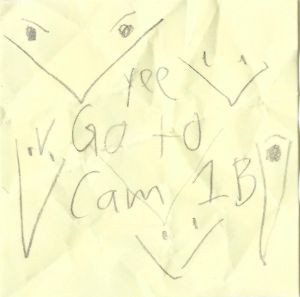 yee
Go to
Cam 1B